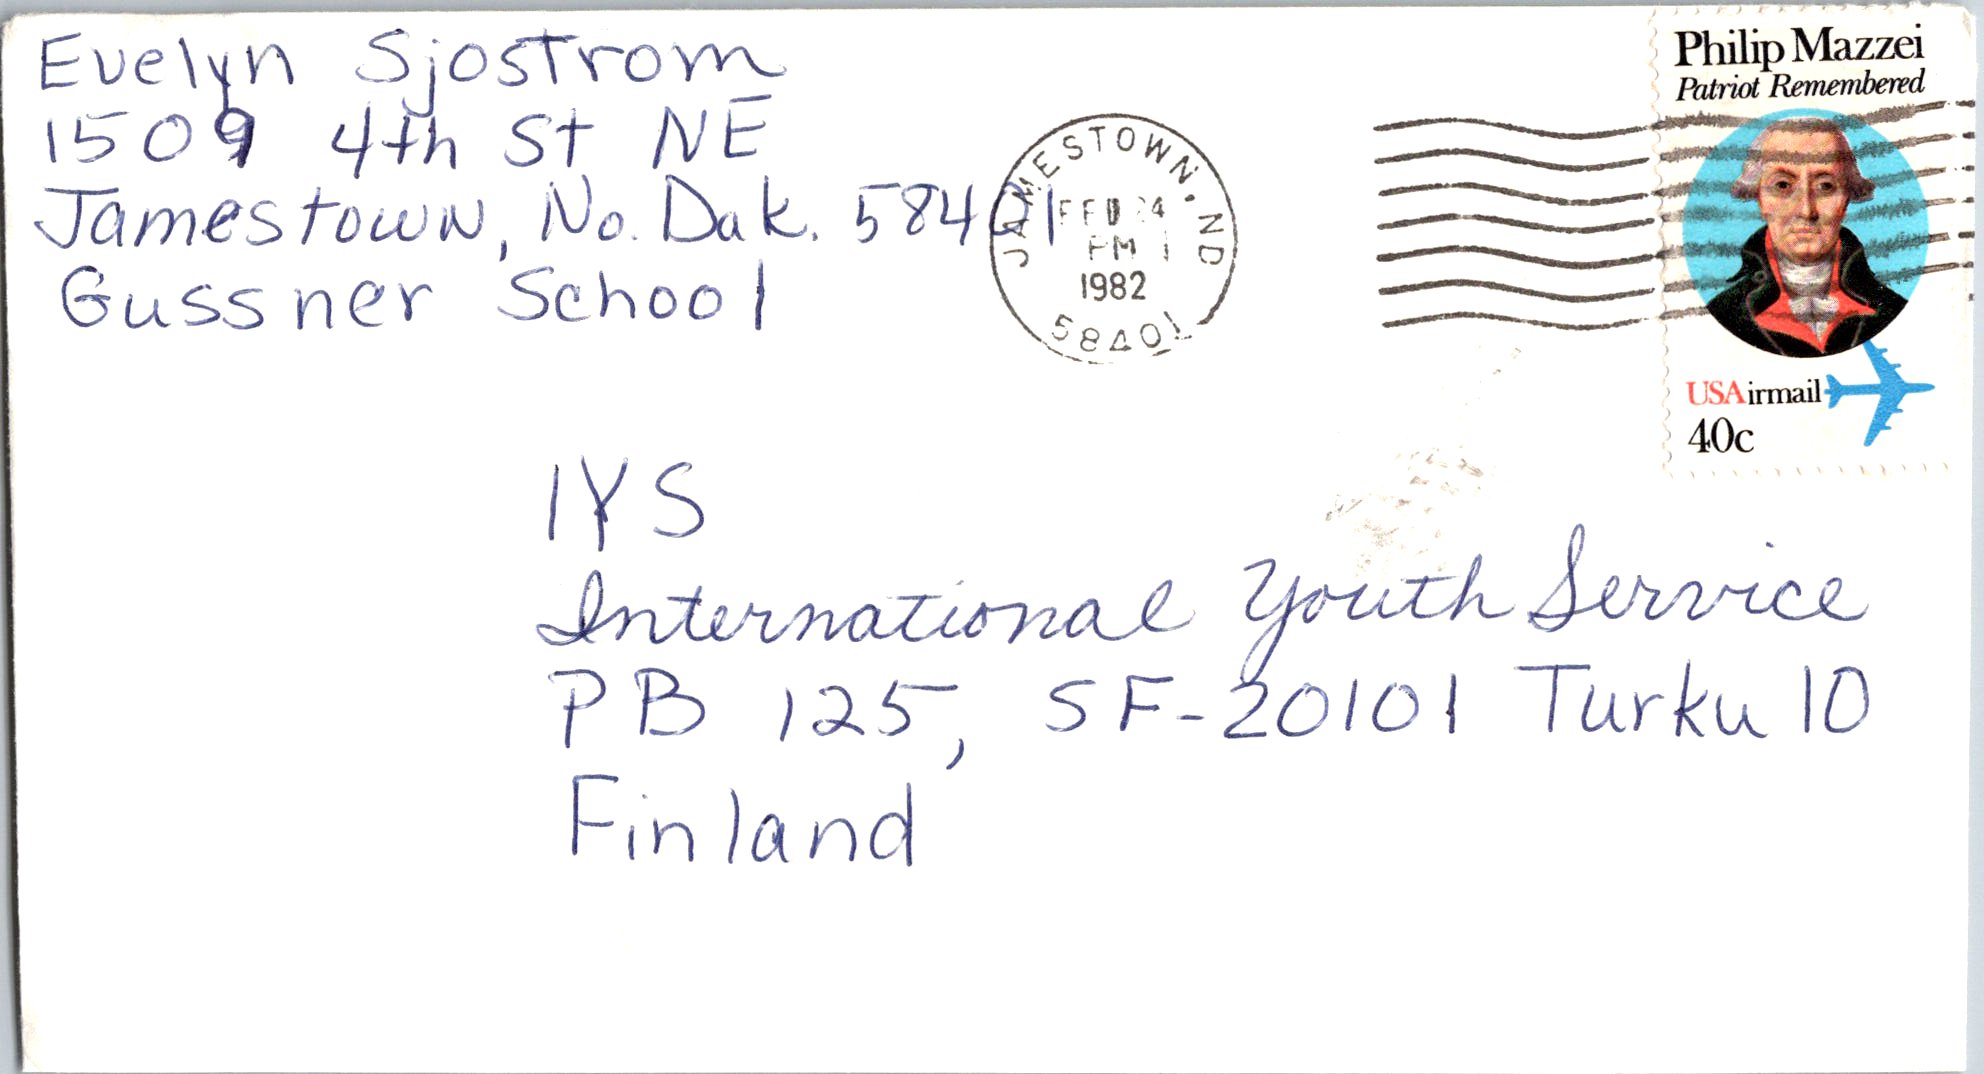 Evelyn Sjostrom
1509 4th St NE
Jamestown, No. Dak. 58401
Gussner School
JAMESTOWN, ND
FEB 24
PM
1982
58401
Philip Mazzei
Patriot Remembered
USAirmail
40c
IYS
International Youth Service
PB 125, SF-20101 Turku 10
Finland